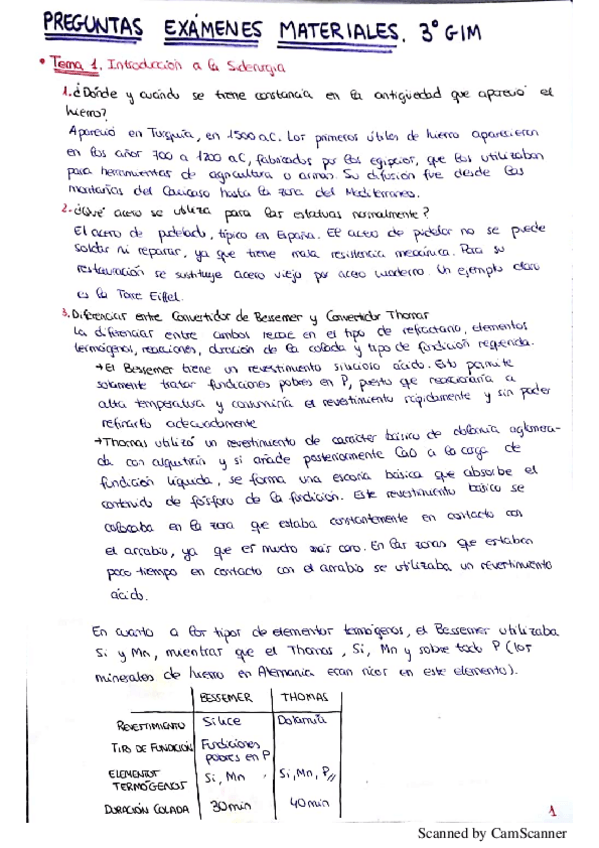 PREGUNTAS EXÁMENES MATERIALES. 3º GIM
• Tema 1. Introducción a la Siderurgia
1. ¿Dónde y cuándo se tiene constancia en la antigüedad que apareció el
hierro?
Apareció en Turquía, en 1500 a.C. Los primeros útiles de hierro aparecieron
en los años 700 a 1200 a.C, fabricados por los egipcios, que los utilizaban
para herramientas de agricultura o armas. Su difusión fue desde las
montañas del Caucaso hasta la zona del Mediterraneo.
2. ¿Qué acero se utiliza para las estatuas normalmente?
El acero de pudelado, típico en España. El acero de pudelar no se puede
soldar ni reparar, ya que tiene mala resistencia mecánica. Para su
restauración se sustituye acero viejo por acero moderno. Un ejemplo claro
es la Torre Eiffel.
3. Diferencias entre Convertidor de Bessemer y Convertidor Thomas
Las diferencias entre ambos recae en el tipo de refractario, elementos
termógenos, reacciones, duración de la colada y tipo de fundición requerida.
→ El Bessemer tiene un revestimiento silicioso ácido. Esto permite
solamente tratar fundiciones pobres en P, puesto que reaccionaría a
alta temperatura y consumiría el revestimiento rápidamente y sin poder
refinarlo adecuadamente
→ Thomas utilizó un revestimiento de caracter básico de dolomía aglomera-
da con alquitrán y si añade posteriormente CaO a la carga de
fundición líquida, se forma una escoria básica que absorbe el
contenido de fósforo de la fundición. Este revestimiento básico se
colocaba en la zona que estaba constantemente en contacto con
el arrabio, ya que es mucho más caro. En las zonas que estaban
poco tiempo en contacto con el arrabio se utilizaba un revestimiento
ácido.
En cuanto a los tipos de elementos termógenos, el Bessemer utilizaba
Si y Mn, mientras que el Thomas, Si, Mn y sobre todo P (los
minerales de hierro en Alemania eran ricos en este elemento).
BESSEMER THOMAS
REVESTIMIENTO Sílice Dolomía
TIPO DE FUNDICIÓN Fundiciones
pobres en P
ELEMENTOS
TERMÓGENOS Si, Mn Si, Mn, P
DURACIÓN COLADA 30min 40min
1
Scanned by CamScanner